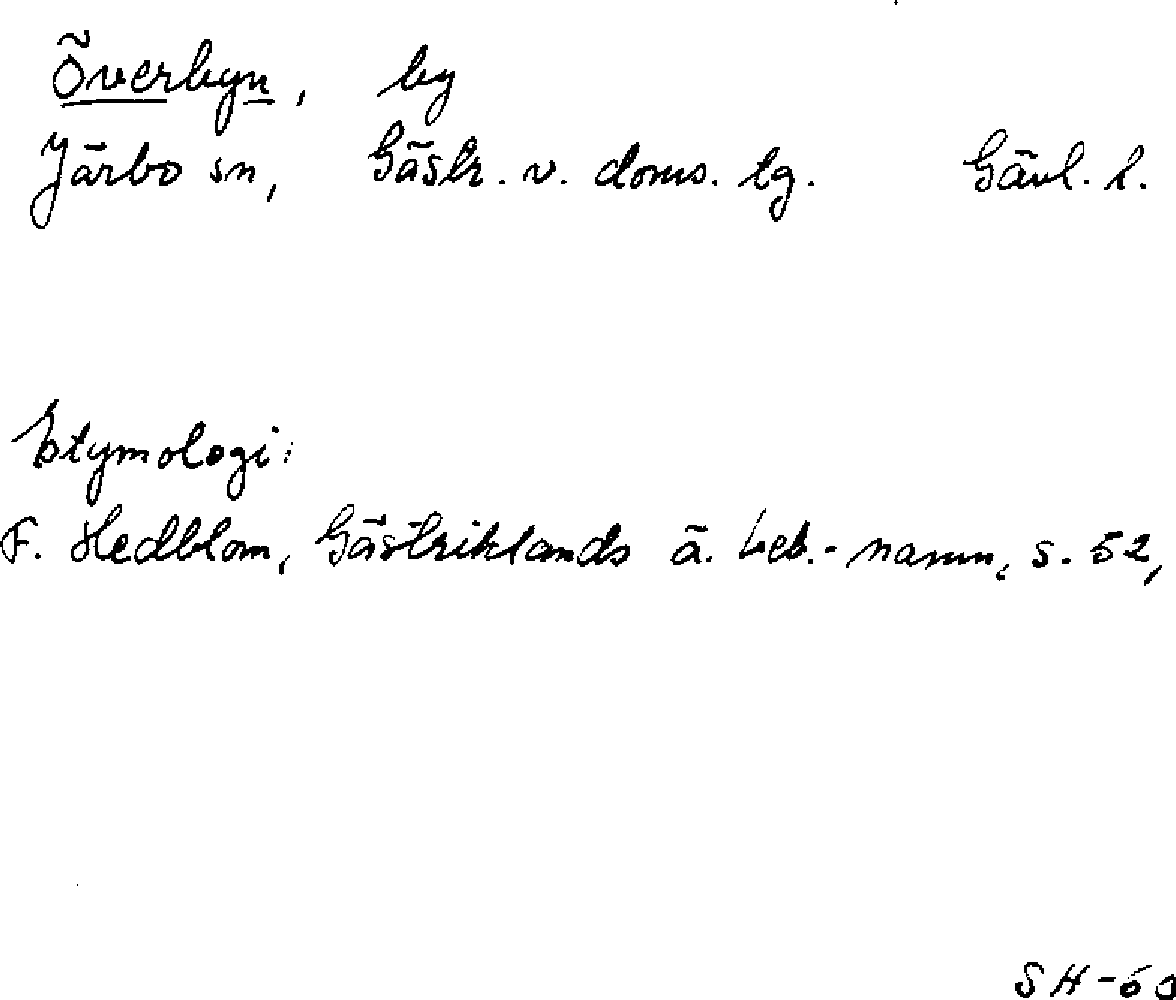 Överbyn, by
Järbo sn, Gästr. v. doms. tg. Gävl. l.
Etymologi:
F. Hedblom, Gästriklands ä. beb.-namn, s. 52,
SH-60